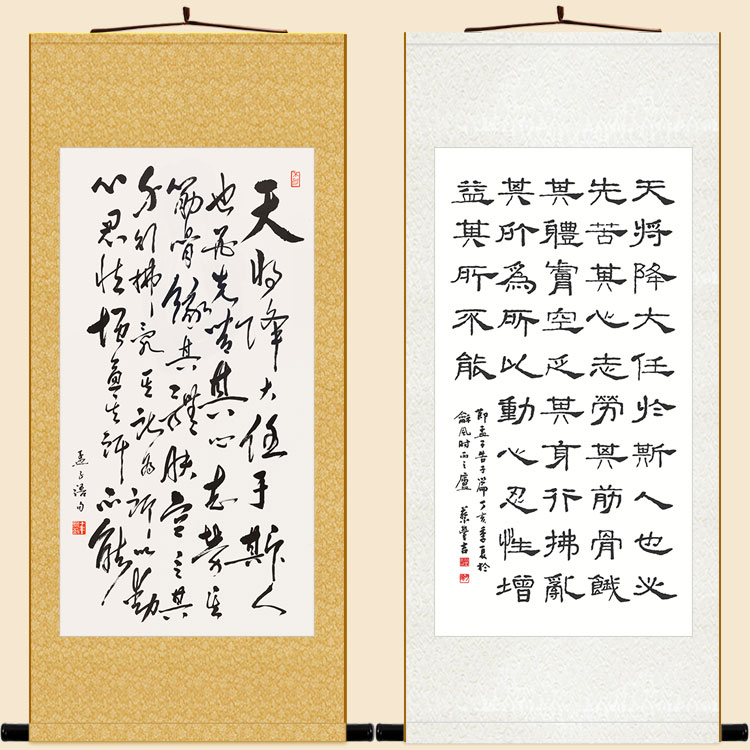 天将降大任于斯人
也必先苦其心志劳其
筋骨餓其體肤空乏其
身行拂乱其所为所以动
心忍性增益其所不能
天將降大任於斯人也必
先苦其心志勞其筋骨餓
其體膚空乏其身行拂亂
其所為所以動心忍性增
益其所不能
節孟子告子篇丁亥季夏於
龢風時雨之廬